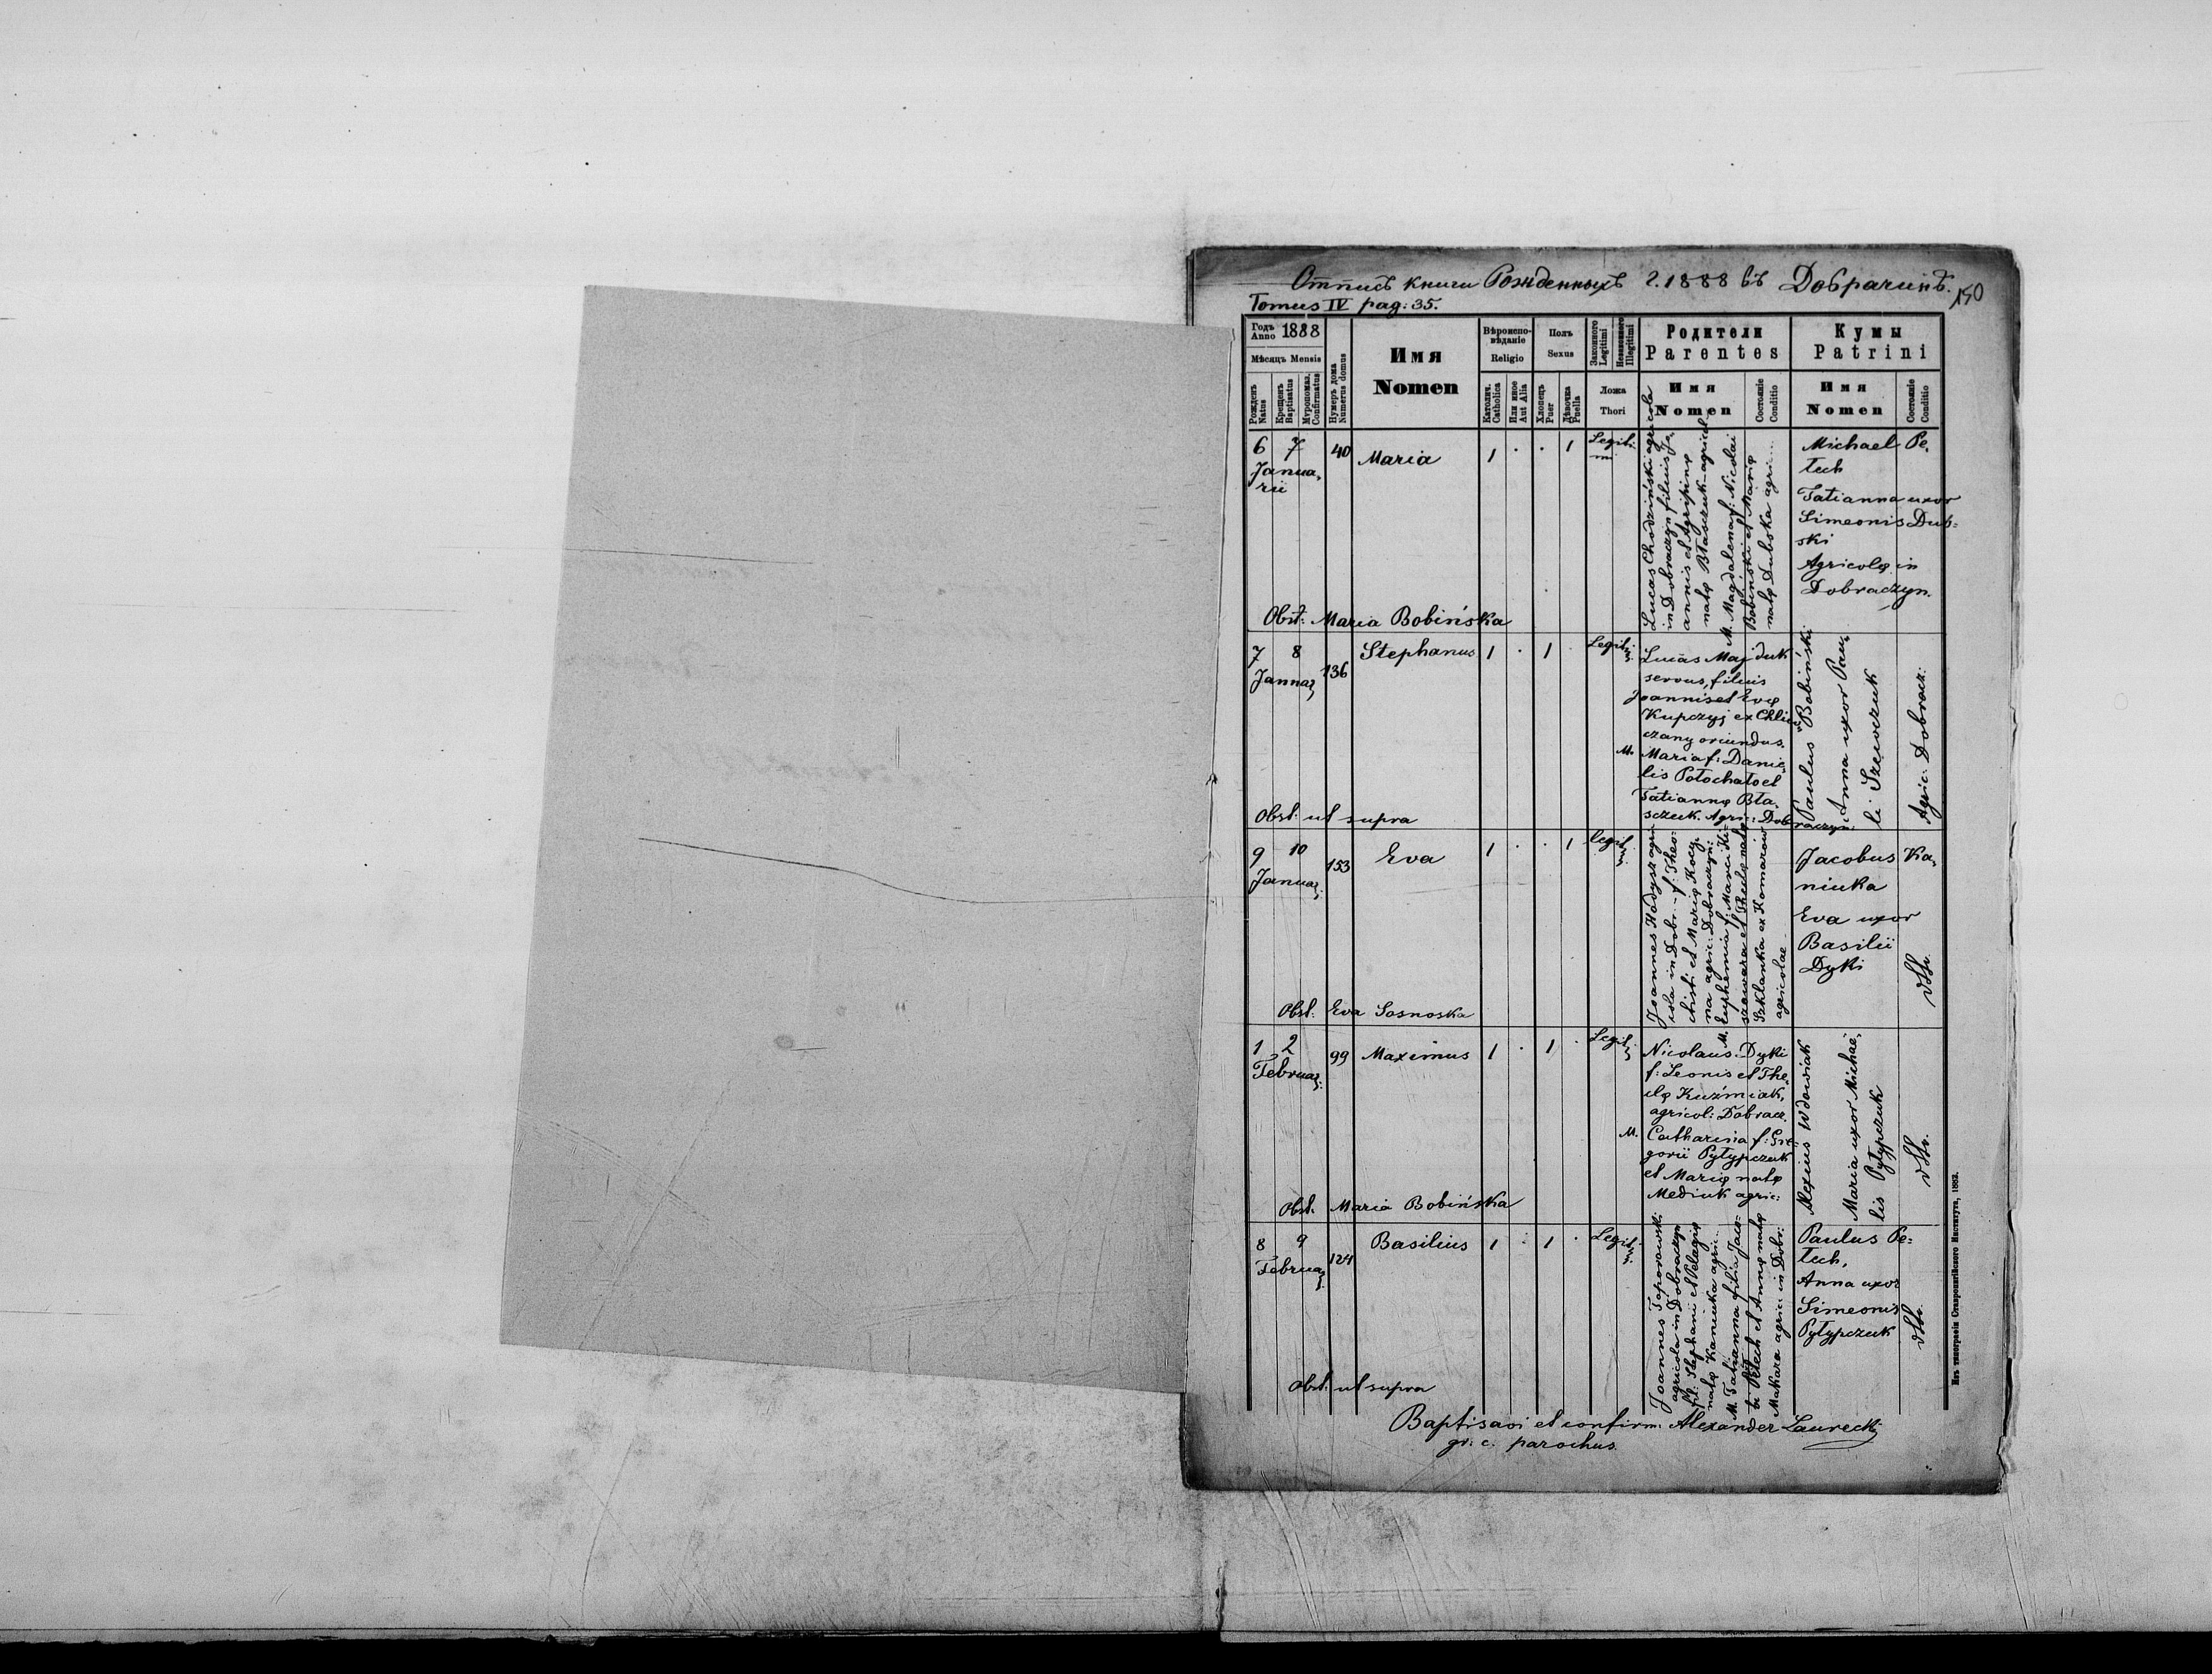 Отпись книги Рожденныхъ г. 1888 въ Добрачинѣ.
150
Tomus IV pag: 35.
Годъ Anno 1888
Мѣсяцъ Mensis
Рожденъ Natus
Крещенъ Baptisatus
Муропомаз. Confirmatus
Нумеръ дома Numerus domus
Имя
Nomen
Вѣроиспо-
вѣданіе
Religio
Католич. Catholica
Или иное Aut Alia
Полъ
Sexus
Хлопецъ Puer
Дѣвочка Puella
Законного Legitimi
Незаконного Illegitimi
Ложа
Thori
Родители
Parentes
Имя
Nomen
Состояніе Conditio
Кумы
Patrini
Имя
Nomen
Состояніе Conditio
6 7
Janua,
rii
40
Maria
1 . . 1
Legiti:
mi
Lucas Chodziński agricola
in Dobraczyn filius Jo,
annis et Agripinę
natę Błasczuk agricol.
M. Magdalena f: Nicolai
Bobiński et Marię
natę Dubska agri...
Michael Pe,
tech
Tatianna uxor
Simeonis Dub=
ski
Agricolę in
Dobraczyn.
Obst: Maria Bobińska
7 8
Januar,
136
Stephanus
1 . 1 .
Legit:
Lucas Majduk
servus, filius
Joannis et Evę
Kupczyj ex Chliw
czany oriundus.
M. Maria f: Danie,
lis Potochato et
Tatiannę Bła,
sczuk. Agri: Dobraczyn:
Paulus Bobiński
Anna uxor Pau,
li Szewczuk
Agric: Dobracz:
Obst: ut supra
9 10
Januar,
153
Eva
1 . . 1
legit:
Joannes Hadysz agri
cola in Dobr. f: Theo
ctisti et Marię Kocy,
na agric: Dobraczyn:
M. Euphemia f: Marci
szewara et Theclę natę
Szklanka ex Komarów
agricolae
Jacobus Ka,
niuka
Eva uxor
Basilii
Dyki
dtto.
Obst: Eva Sosnoska
1 2
Februar,
99
Maximus
1 . 1 .
Legit:
Nicolaus Dyki
f: Leonis et The,
clę Kuźmiak,
agricol: Dobracz.
M. Catharina f: Gre
gorii Pyłypczuk
et Marię natę
Mediuk agric:
Alexius Wdowiak
Maria uxor Michae,
lis Pyłypczuk
dtto.
Obst: Maria Bobińska
8 9
Februar,
124
Basilius
1 . 1 .
Legit:
Joannes Toporowski
agricola in Dobraczyn
fil: Stephani et Pelagię
natę Kaniuka agri...
M. Tatianna filia Jaco=
bi Petech et Annę natę
Makara agric: in Dobr:
Paulus Pe=
tech,
Anna uxor
Simeonis
Pyłypczuk
dtto.
Obst: ut supra
Baptisavi et confirm: Alexander Laurecki
gr: c. parochus.
Изъ типографіи Ставропигійского Института, 1883.